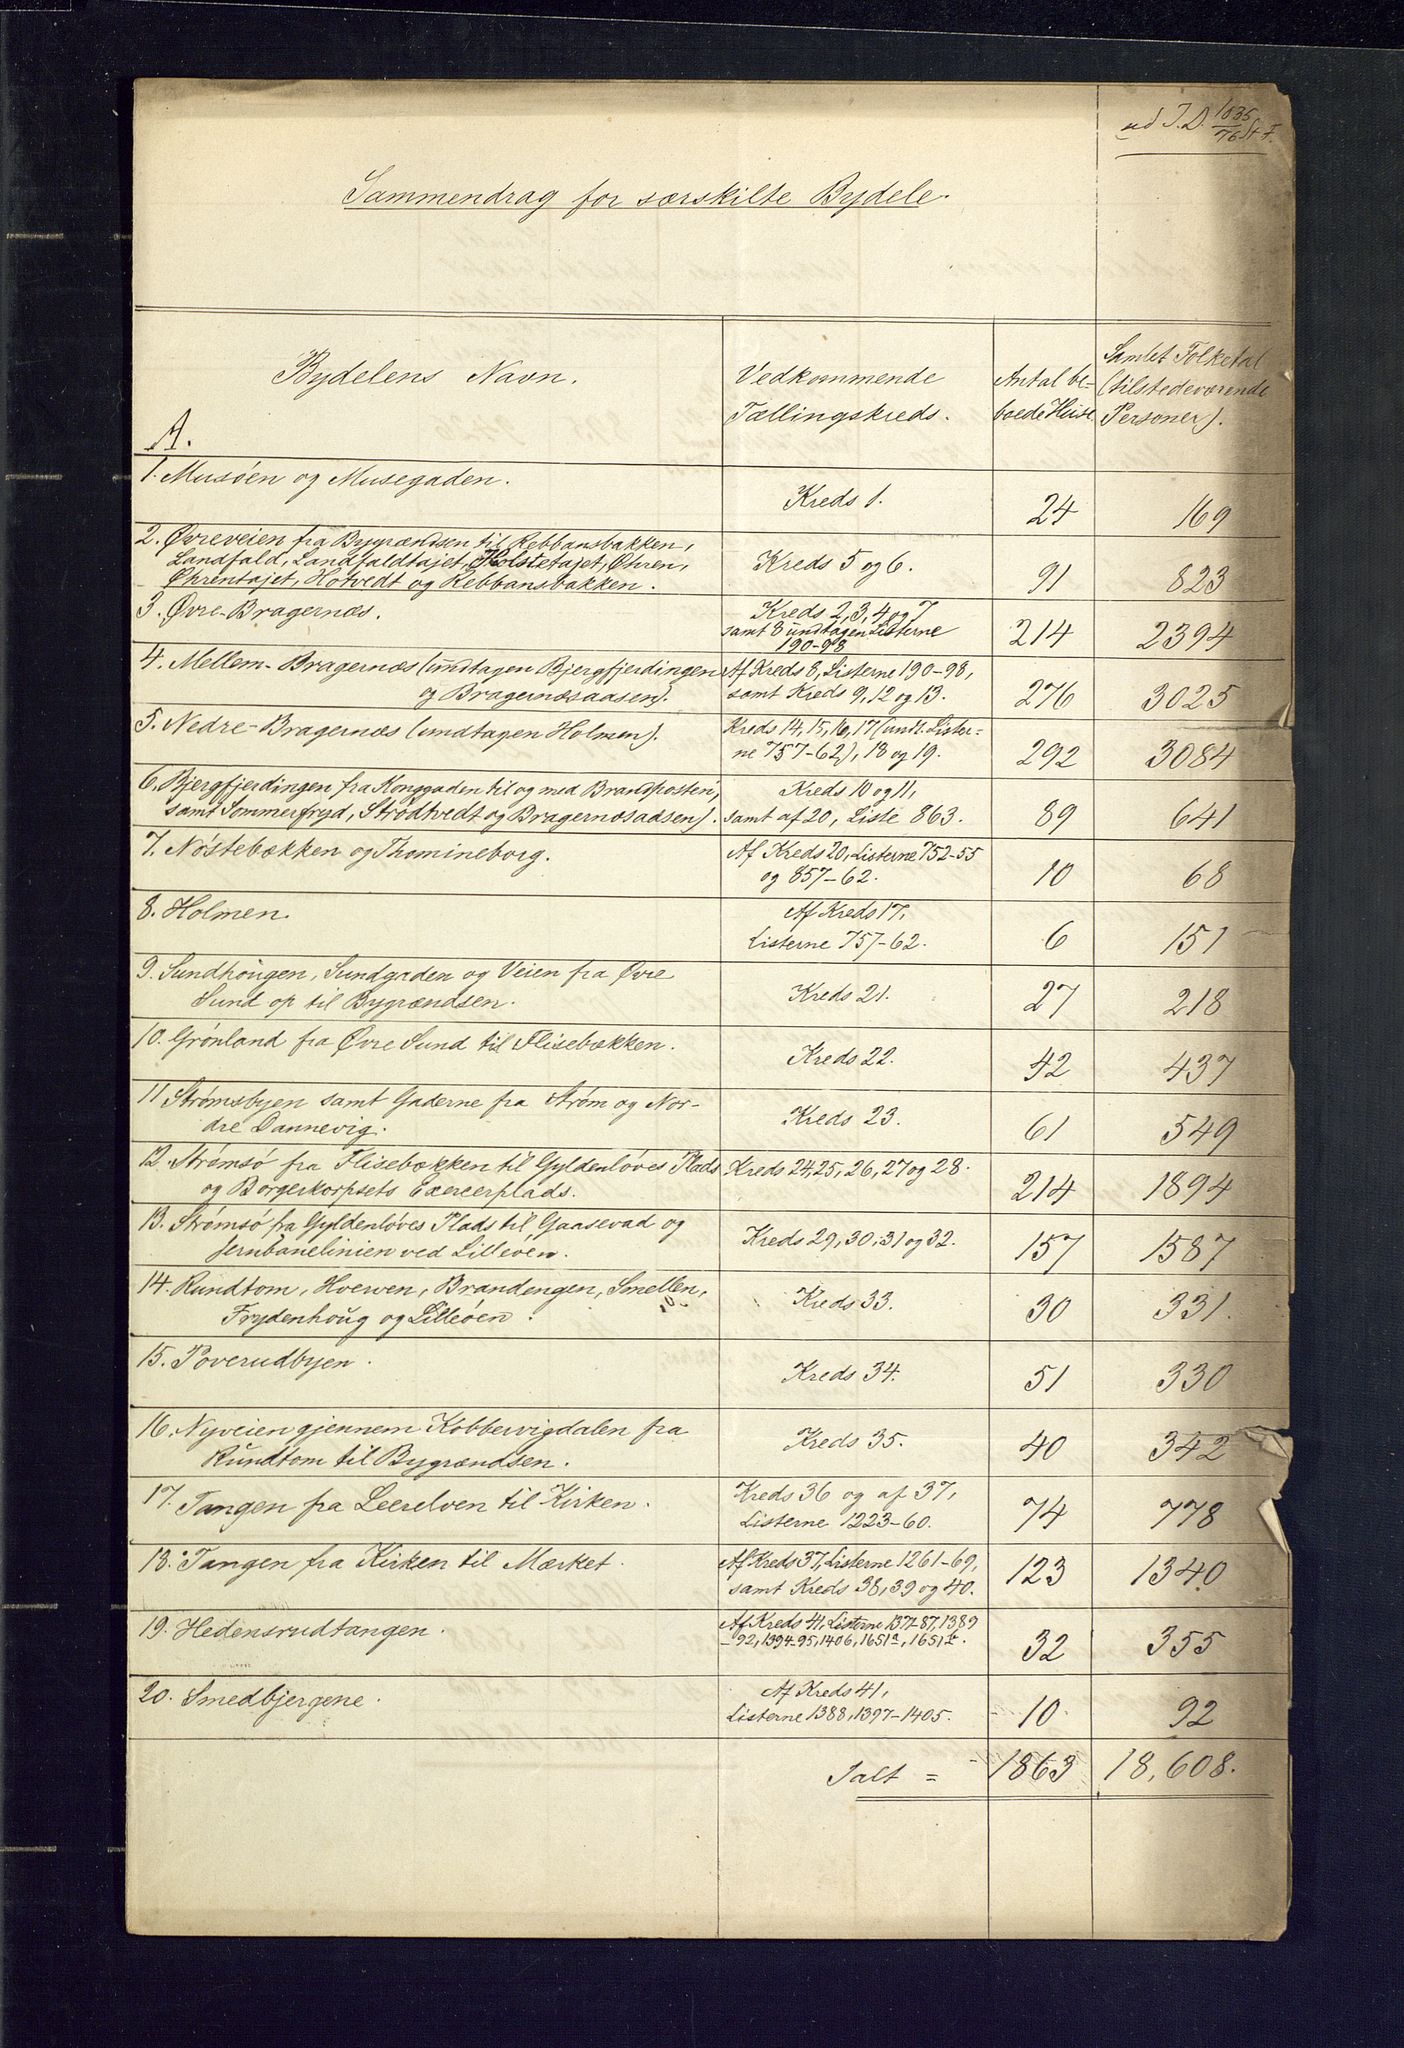 ad J.D. 1035/76 St. F.
Sammendrag for særskilte Bydele.
Bydelens Navn.
Vedkommende
Tællingskreds.
Antal be-
boede Huse
Samlet Folketal
(tilstedeværende
Personer).
A.
1. Musöen og Musegaden.
Kreds 1.
24
169
2. Øvreveien fra Bygrændsen til Rebbansbakken,
Landfald, Landfaldtajet, Holstetajet, Øhren,
Øhrentajet, Hotvedt og Rebbansbakken.
Kreds 5 og 6.
91
823
3. Øvre-Bragernæs.
Kreds 2, 3, 4 og 7
samt 8 undtagen Listerne
190-98
214
2394
4. Mellem-Bragernæs (undtagen Bjergfjerdingen
og Bragernæsaasen).
Af Kreds 8, Listerne 190-98,
samt Kreds 9, 12 og 13.
276
3025
5. Nedre-Bragernæs (undtagen Holmen).
Kreds 14, 15, 16, 17 (undt. Lister-
ne 757-62), 18 og 19.
292
3084
6. Bjergfjerdingen fra Konggaden til og med Brandposten,
samt Sommerfryd, Strødtvedt og Bragernæsaasen).
Kreds 10 og 11,
samt af 20, Liste 863.
89
641
7. Nöstebækken og Thomineborg.
Af Kreds 20, Listerne 752-55
og 857-62.
10
68
8. Holmen.
Af Kreds 17,
Listerne 757-62.
6
151
9. Sundhougen, Sundgaden og Veien fra Øvre
Sund op til Bygrændsen.
Kreds 21.
27
218
10. Grönland fra Øvre Sund til Flisebækken.
Kreds 22.
42
437
11 Strømsbyen samt Gaderne fra Strøm og Nor-
dre Dannevig.
Kreds 23.
61
549
12. Strømsö fra Flisebækken til Gyldenlöves Plads
og Borgerkorpsets Exercerplads.
Kreds 24, 25, 26, 27 og 28.
214
1894
13. Strømsö fra Gyldenlöves Plads til Gaasevad og
Jernbanelinien ved Lilleöen.
Kreds 29, 30, 31 og 32.
157
1587
14. Rundtom, Hverven, Brandengen, Smellen,
Frydenhoug og Lilleöen.
Kreds 33.
30
331.
15. Poverudbyen.
Kreds 34.
51
330
16. Nyveien gjennem Kobbervigdalen fra
Rundtom til Bygrændsen.
Kreds 35.
40
342
17. Tangen fra Leerelven til Kirken.
Kreds 36 og af 37,
Listerne 1223-60.
74
778
18. Tangen fra Kirken til Mærket.
Af Kreds 37, Listerne 1261-69,
samt Kreds 38, 39 og 40.
123
1340
19. Hedensrudtangen.
Af Kreds 41, Listerne 1371-87, 1389
-92, 1394-95, 1406, 1651a, 1651b.
32
355
20. Smedbjergene.
Af Kreds 41,
Listerne 1388, 1397-1405.
10.
92
Ialt =
1863
18,608.